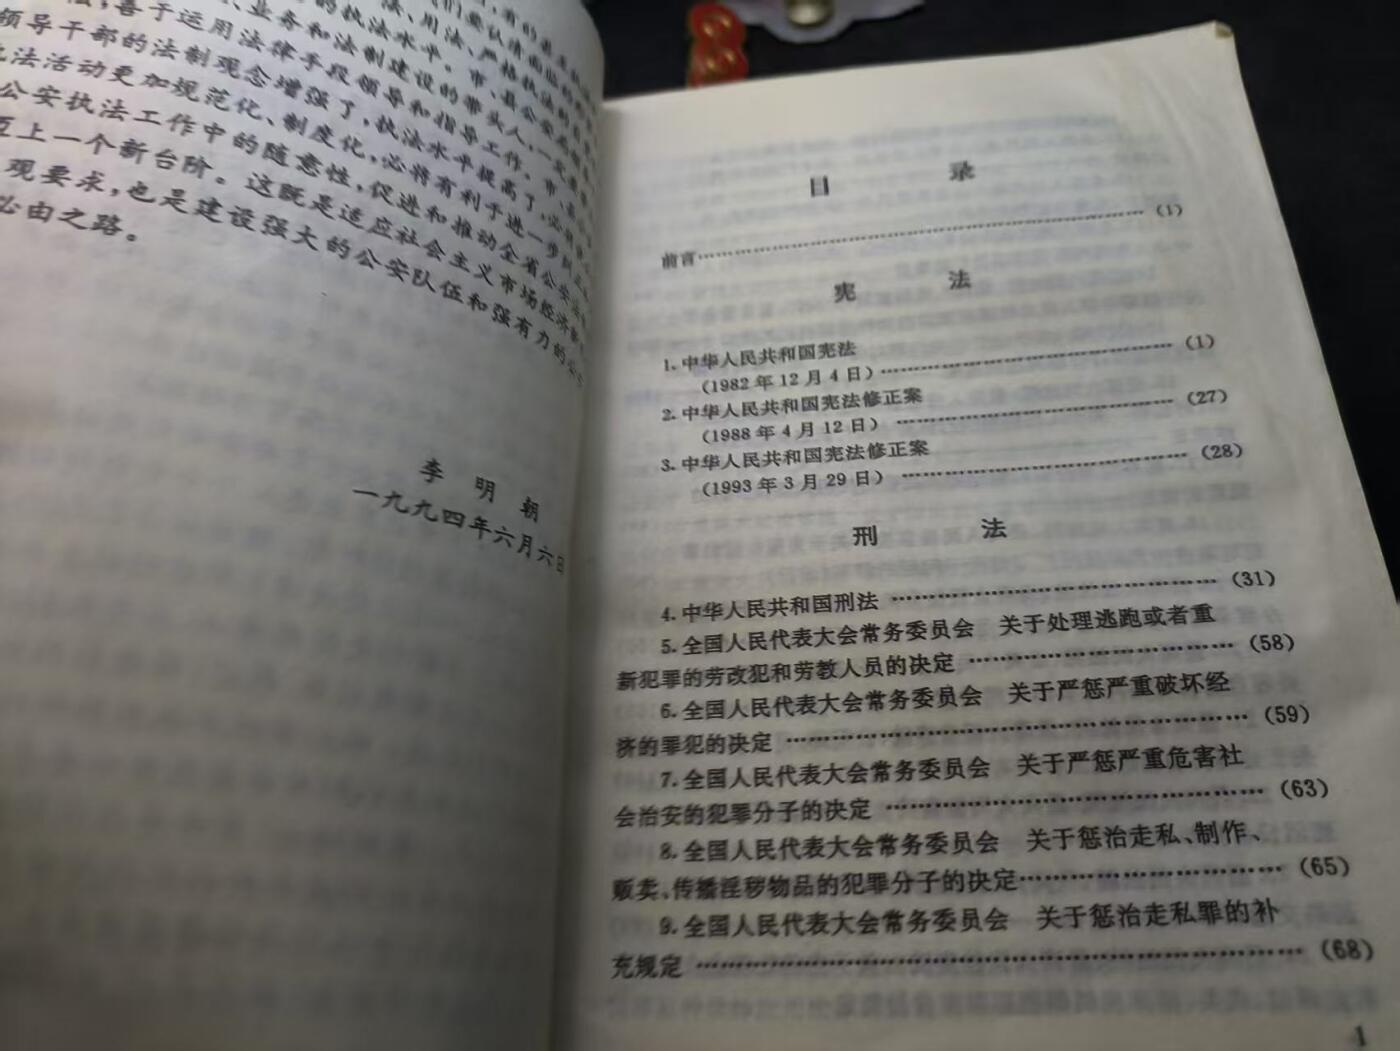 领导干部的法制观念增强了，执法水平提高了，必
法活动更加规范化、制度化，必将有利于进一步
公安执法工作中的随意性，促进和推动全省公安
上一个新台阶。这既是适应社会主义市场经济
观要求，也是建设强大的公安队伍和强有力的公
必由之路。
李 明 朝
一九九四年六月六日
目 录
前言……………………………………(1)
宪 法
1.中华人民共和国宪法
(1982年12月4日)……………………(1)
2.中华人民共和国宪法修正案
(1988年4月12日)……………………(27)
3.中华人民共和国宪法修正案
(1993年3月29日)……………………(28)
刑 法
4.中华人民共和国刑法……………………(31)
5.全国人民代表大会常务委员会 关于处理逃跑或者重
新犯罪的劳改犯和劳教人员的决定………………(58)
6.全国人民代表大会常务委员会 关于严惩严重破坏经
济的罪犯的决定……………………………(59)
7.全国人民代表大会常务委员会 关于严惩严重危害社
会治安的犯罪分子的决定……………………(63)
8.全国人民代表大会常务委员会 关于惩治走私、制作、
贩卖、传播淫秽物品的犯罪分子的决定………………(65)
9.全国人民代表大会常务委员会 关于惩治走私罪的补
充规定……………………………………(68)
1